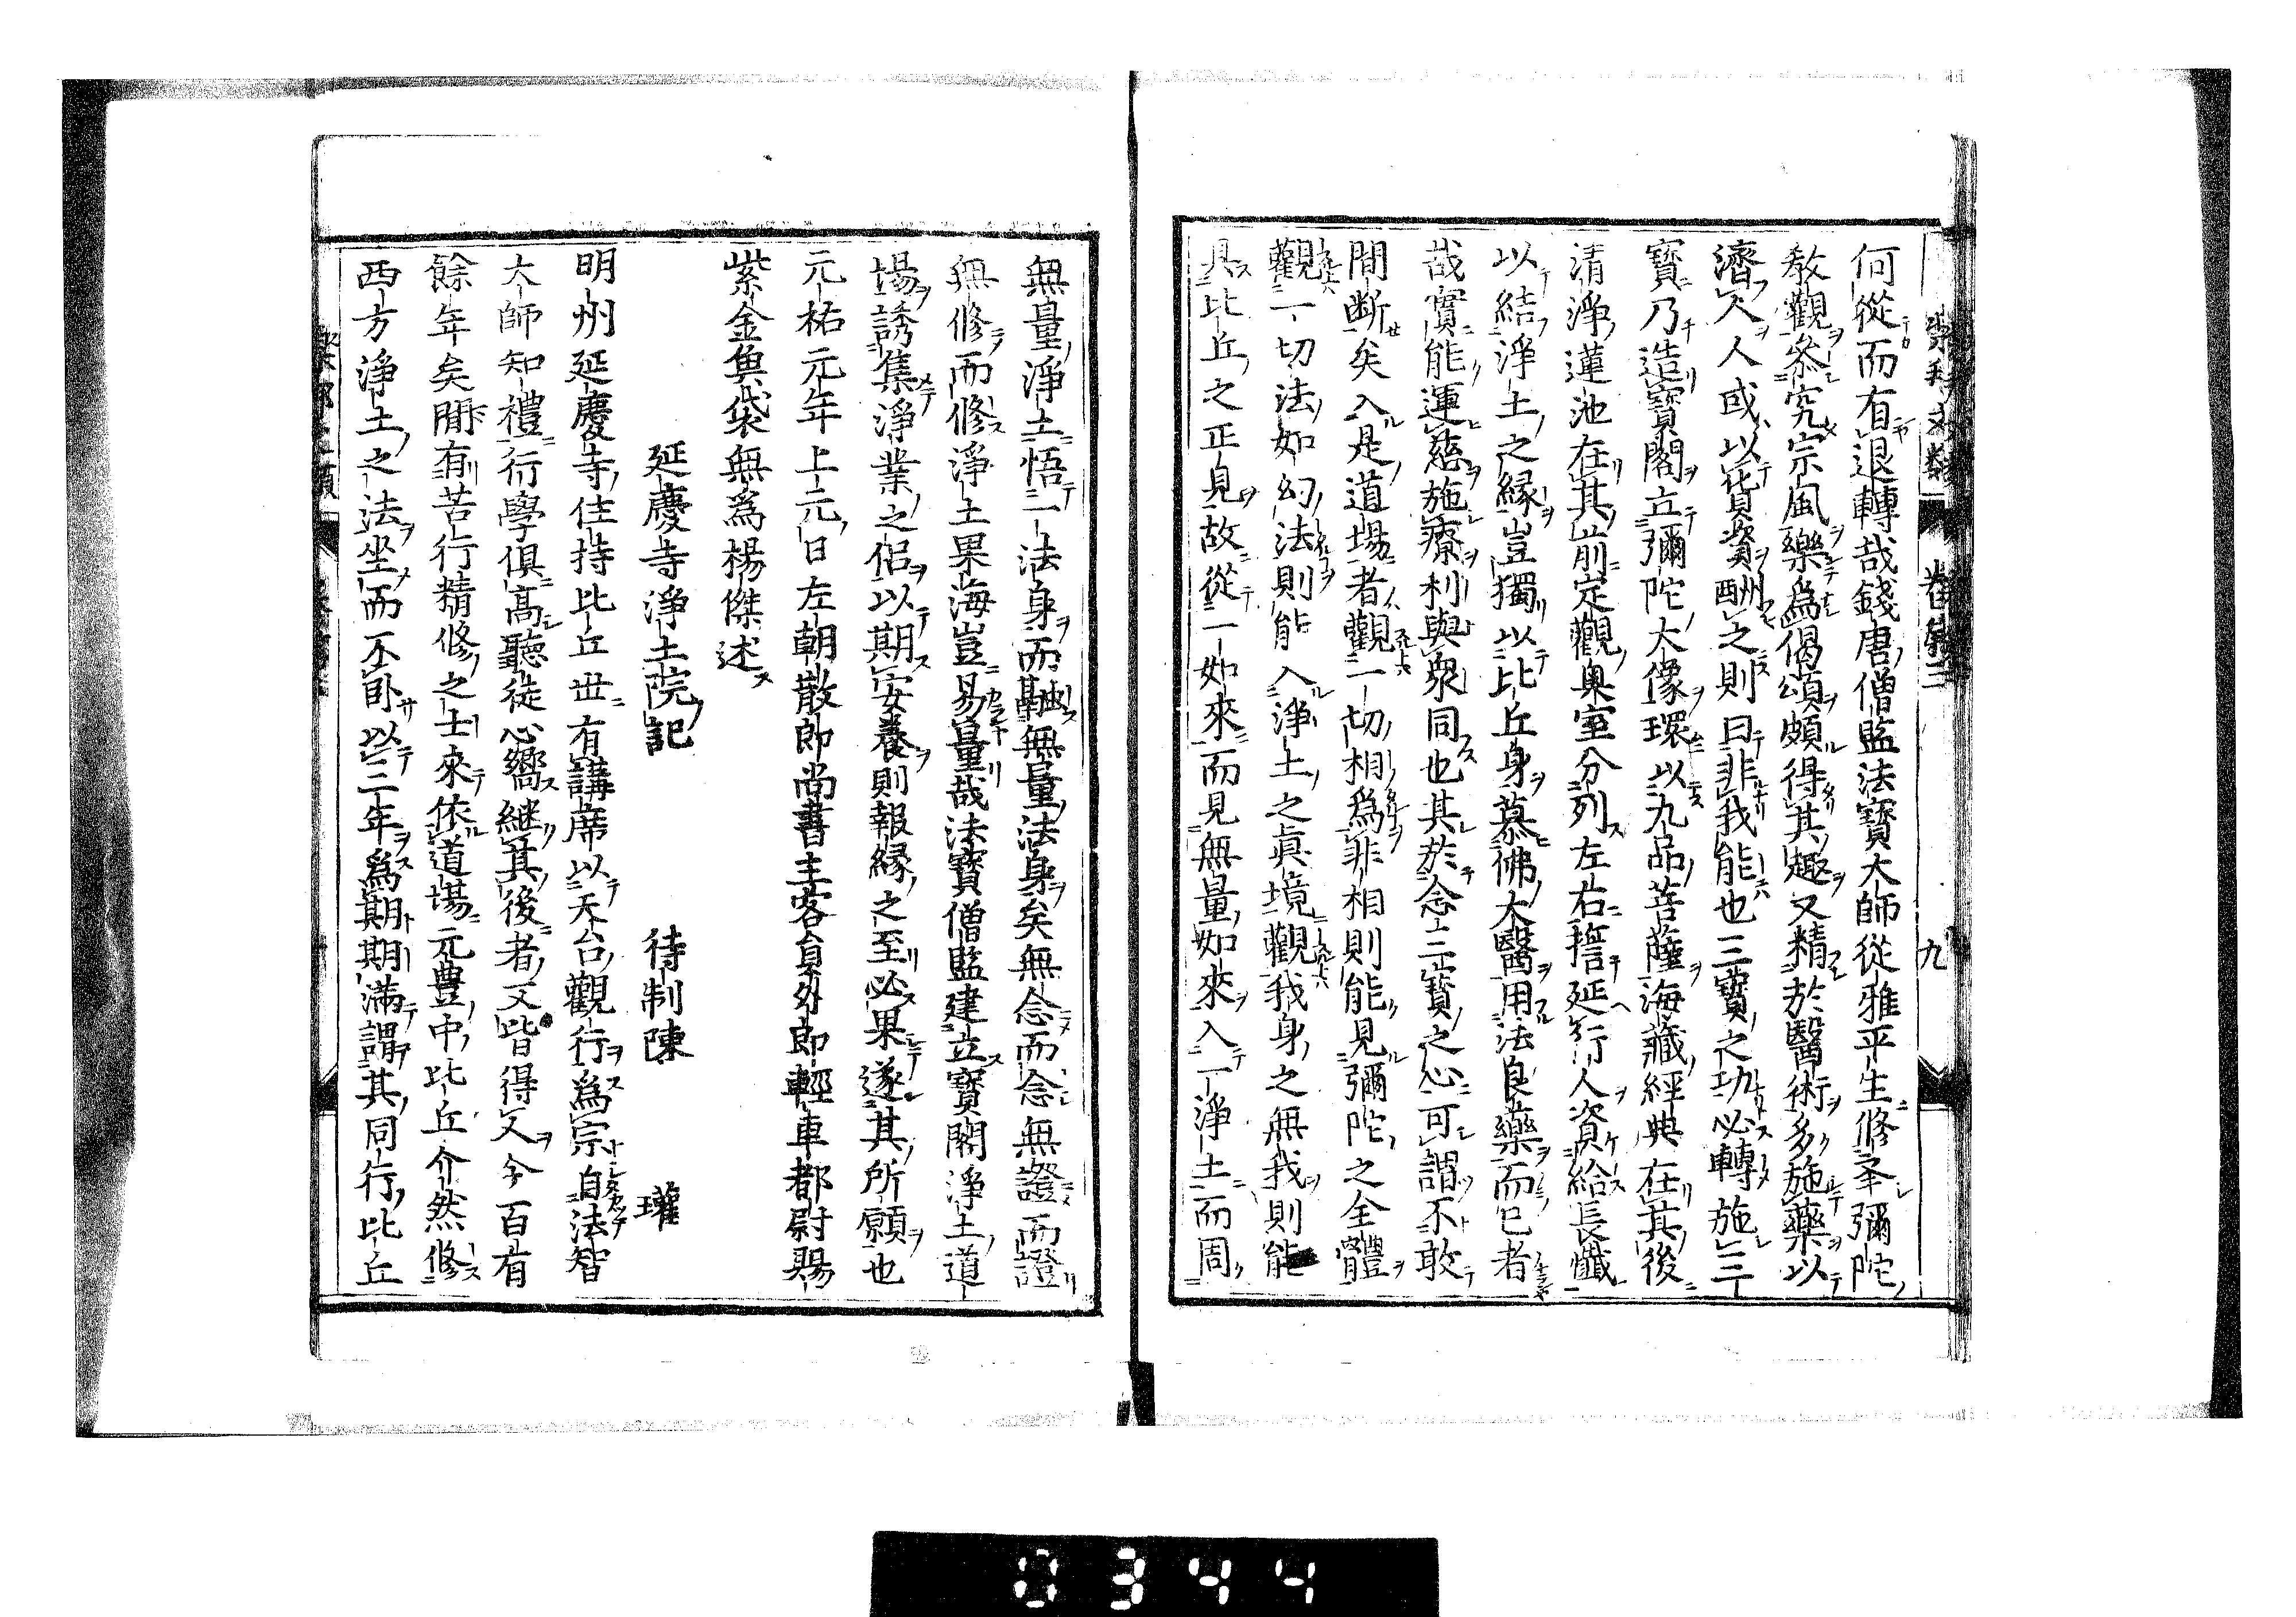 何從而有退轉哉錢唐僧監法寶大師從雅平生修奉彌陀
敎觀叅究宗風樂爲偈頌頗得其趣又精於醫術多施藥以
濟人人或以貨資酬之則曰非我能也三寶之功必轉施三
寶乃造寶閣立彌陀大像環以九品菩薩海藏經典在其後
清淨蓮池在其前定觀奥室分列左右誓延行人資給長懺
以結淨土之縁豈獨以比丘身慕佛大醫用法良藥而已者
哉實能運慈施療利與衆同也其於念三寶之心可謂不敢
間断矣入是道場者觀一切相爲非相則能見彌陀之全體
觀一切法如幻法則能入淨土之眞境觀我身之無我則能
具比丘之正見故從一如來而見無量如來入一淨土而周
九
無量淨土悟一法身而融無量法身矣無念而念無證而證
無修而修淨土果海豈易量哉法寶僧監建立寶閣淨土道
場誘集淨業之侶以期安養則報縁之至必果遂其所願也
元祐元年上元日左朝散郎尚書主客員外郎輕車都尉賜
紫金魚袋無爲楊傑述
延慶寺淨土院記　待制陳　瓘
明州延慶寺住持比丘世有講席以天台觀行爲宗自法智
大師知禮行學俱高聽徒心嚮継其後者又皆得人今百有
餘年矣間有苦行精修之士來依道場元豊中比丘介然修
西方淨土之法坐而不卧以三年爲期期滿謂其同行比丘
0344